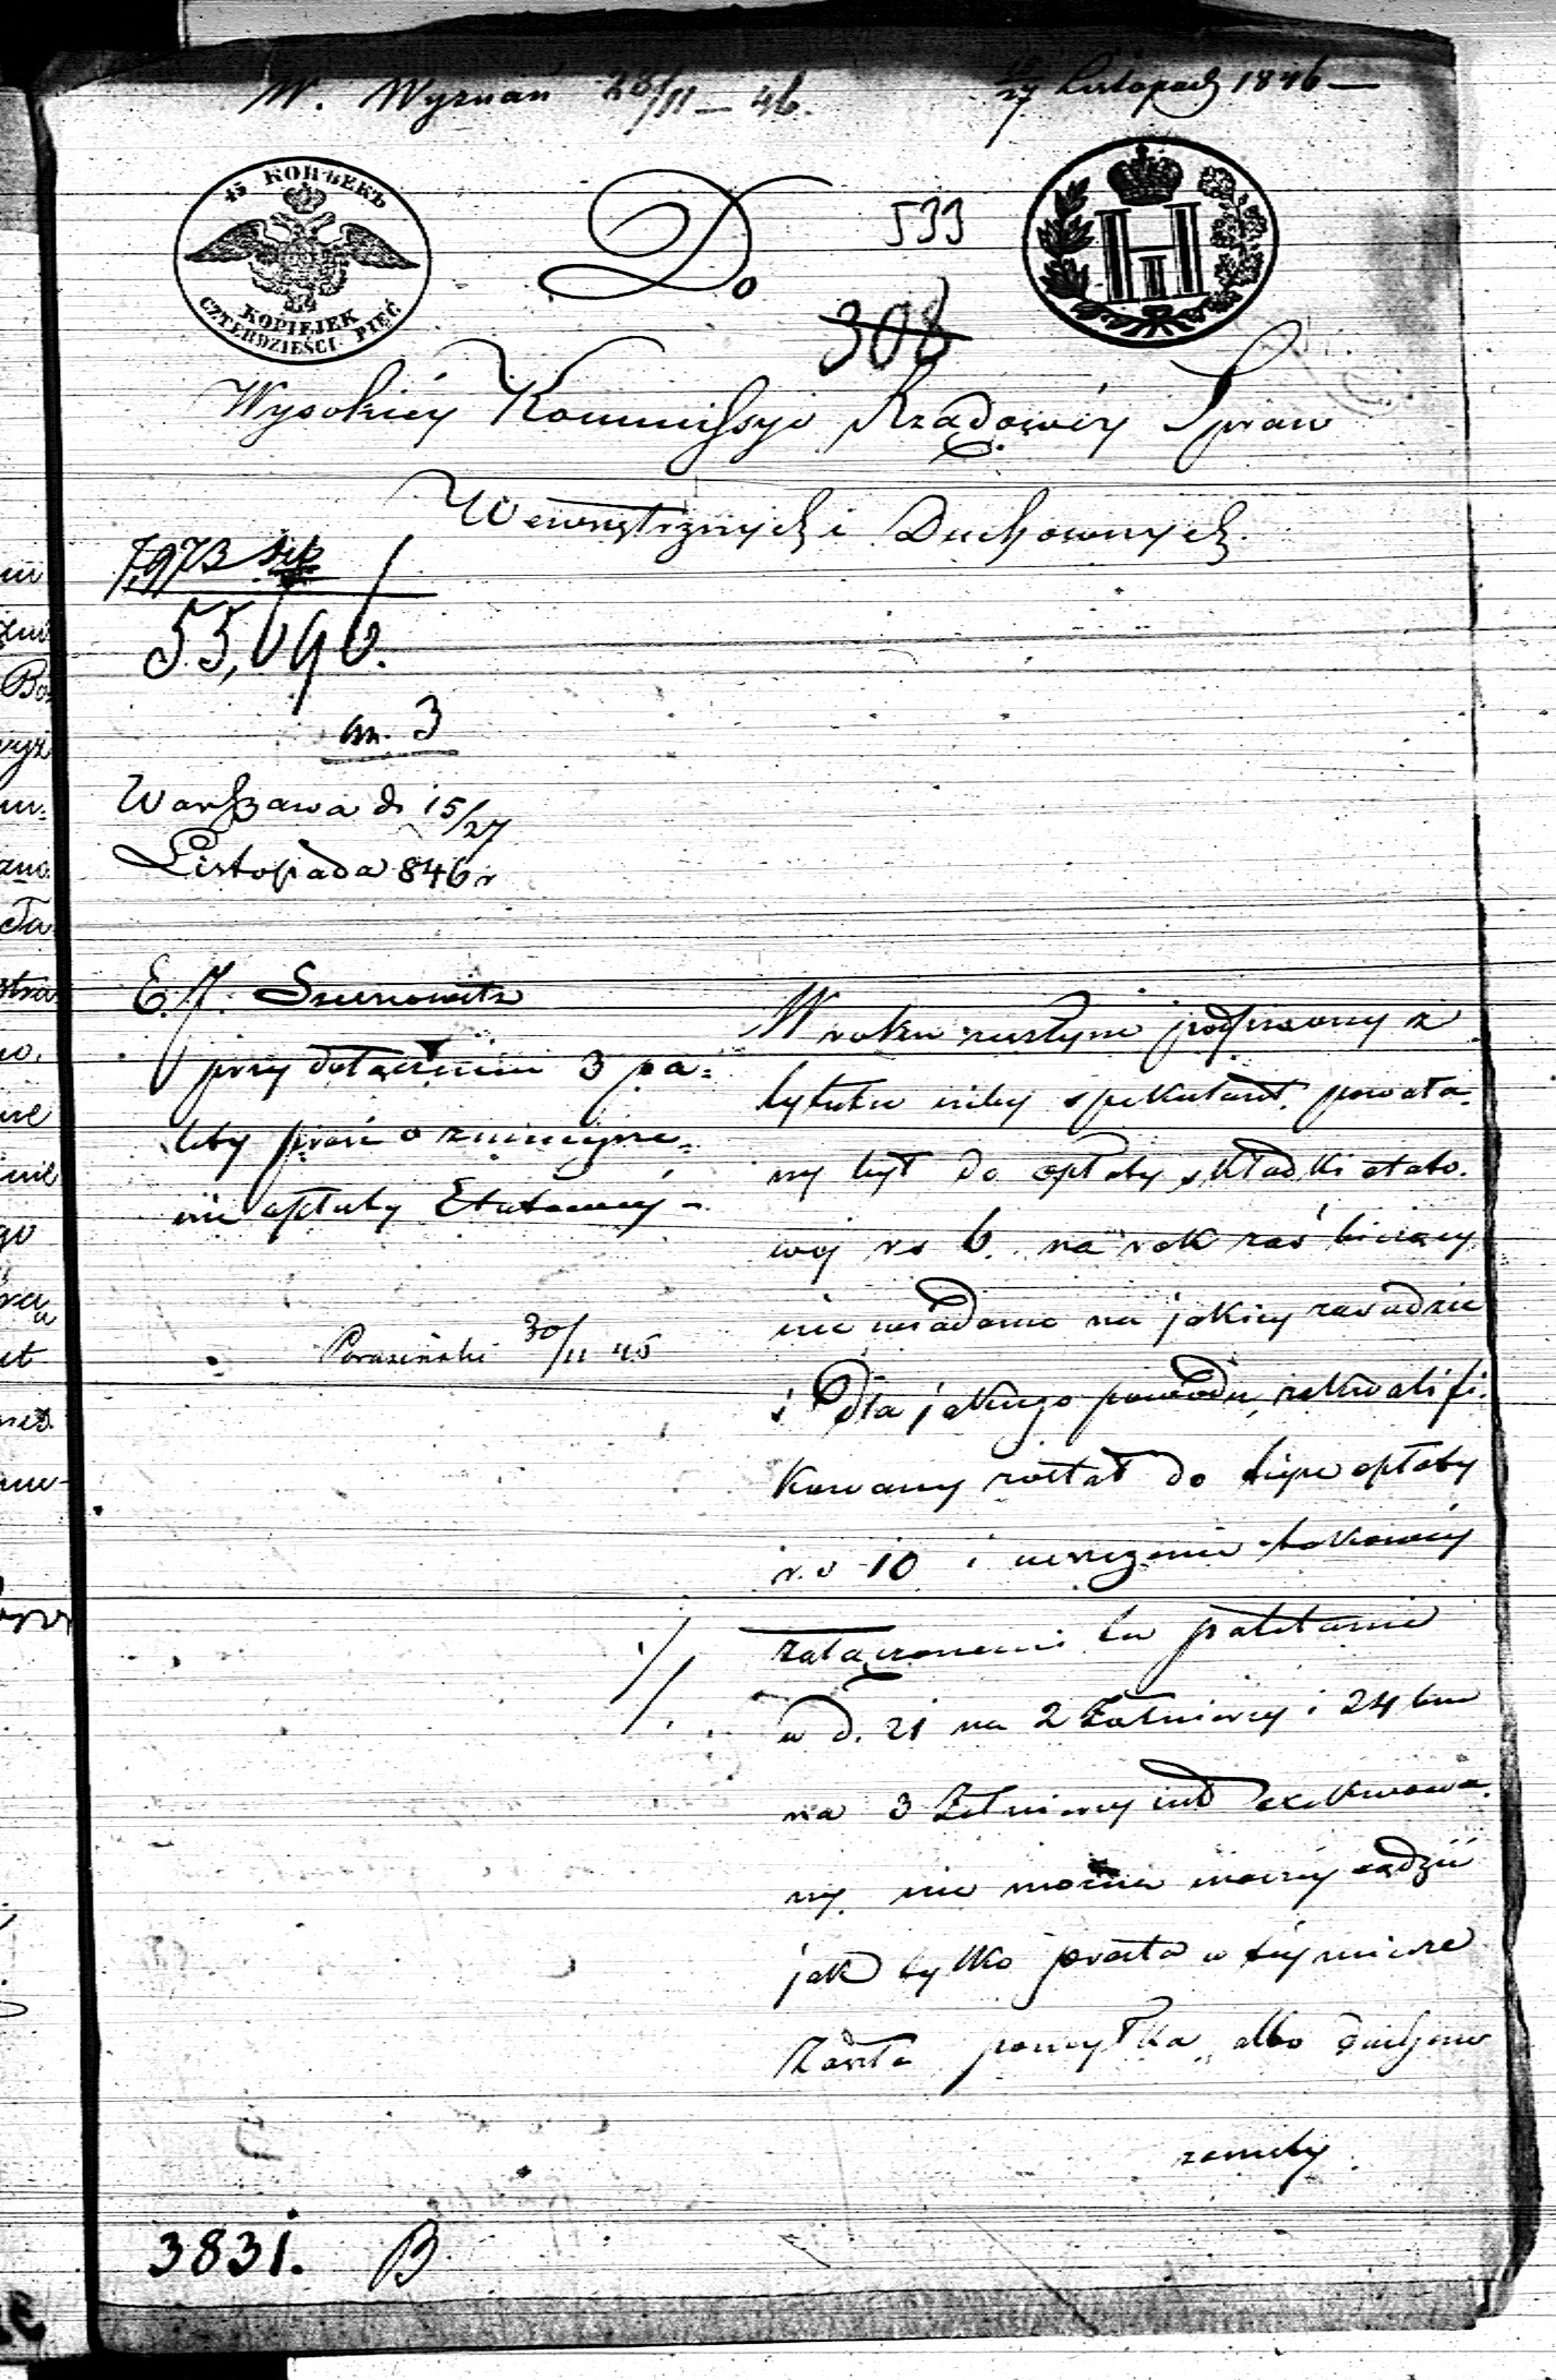 W. Wyznań 28/11 – 46.
15/27 Listopad 1846 —
45 КОПѢЕКЪ
KOPIEJEK
CZTERDZIEŚCI PIĘĆ
Do
533
308
Wysokiéy Kommissyi Rządowéy Spraw
Wewnętrznych i Duchownych.
7,973
55,696.
an. 3
Warszawa d. 15/27
Listopada 846 r
E. J.
przy dołączeniu 3 pa=
lety prosi o zmnieysze=
nie opłaty Etatowéy –
30/11 46
W roku zeszłym podpisany z
tytułu niby spekulant. powoła=
ny był do opłaty składki etato=
wej rs 6. na rok zaś bieżący
nie wiadomo na jakiey zasadzie
i dla jakiego powodu, zakwalifi=
kowany został do teyże opłaty
rs 10 i
załączonemi tu paletami
w d. 21 na 2 Żołnierzy i 24 bm
na 3 Żołnierzy exekwowa=
ny. nie można inaczéy sądzić
jak tylko prosta w téy mierze
zaszła pomyłka, albo duchem
zemsty.
3831. B.